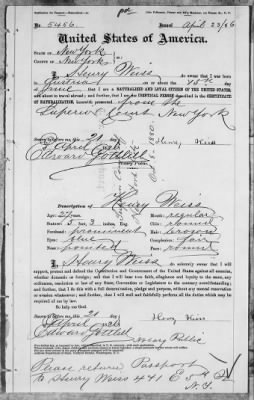 No. 5416. Issued April 23/86
United States of America.
STATE OF New York
COUNTY OF New York
I, Henry Weiss do swear that I was born
in Austria on or about the 15th day
of June that I am a NATURALIZED AND LOYAL CITIZEN OF THE UNITED STATES,
and about to travel abroad; and further, that I am the IDENTICAL PERSON described in the CERTIFICATE
OF NATURALIZATION, herewith presented, from the
Superior Court New York
Sworn to before me, this 21 day
of April 1886 Henry Weiss
Edward Gottlieb
Notary Public.
Description of Henry Weiss
Age: 27 years Mouth: regular
Stature: 5 feet 3 inches Chin:
Forehead: prominent Hair: brown
Eyes: blue Complexion: fair
Nose: pointed Face:
I, Henry Weiss do solemnly swear that I will
support, protect and defend the Constitution and Government of the United States against all enemies,
whether domestic or foreign; and that I will bear true faith, allegiance and loyalty to the same, any
ordinance, resolution or law of any State, Convention or Legislature to the contrary notwithstanding; and
further, that I do this with a full determination, pledge and purpose, without any mental reservation
or evasion whatsoever; and further, that I will well and faithfully perform all the duties which may be
required of me by law.
So help me God.
Sworn to before me, this 21 day
of April 1886 Henry Weiss
Edward Gottlieb
Notary Public
Please return Passport
to Henry Weiss 441 E 5th St
N.Y.